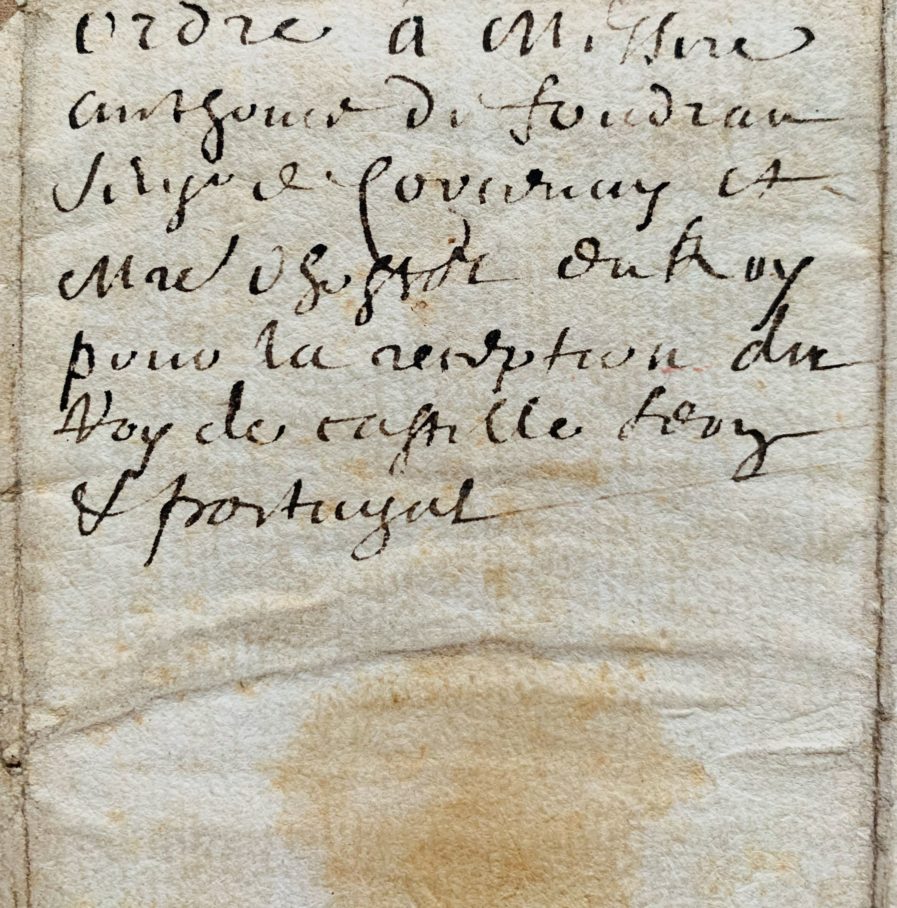 ordre a Messire
anthoine de foudran
Seigr de Courcenay et
Mre d hostel du Roy
pour la reception du
Roy de castille leon
& portugal